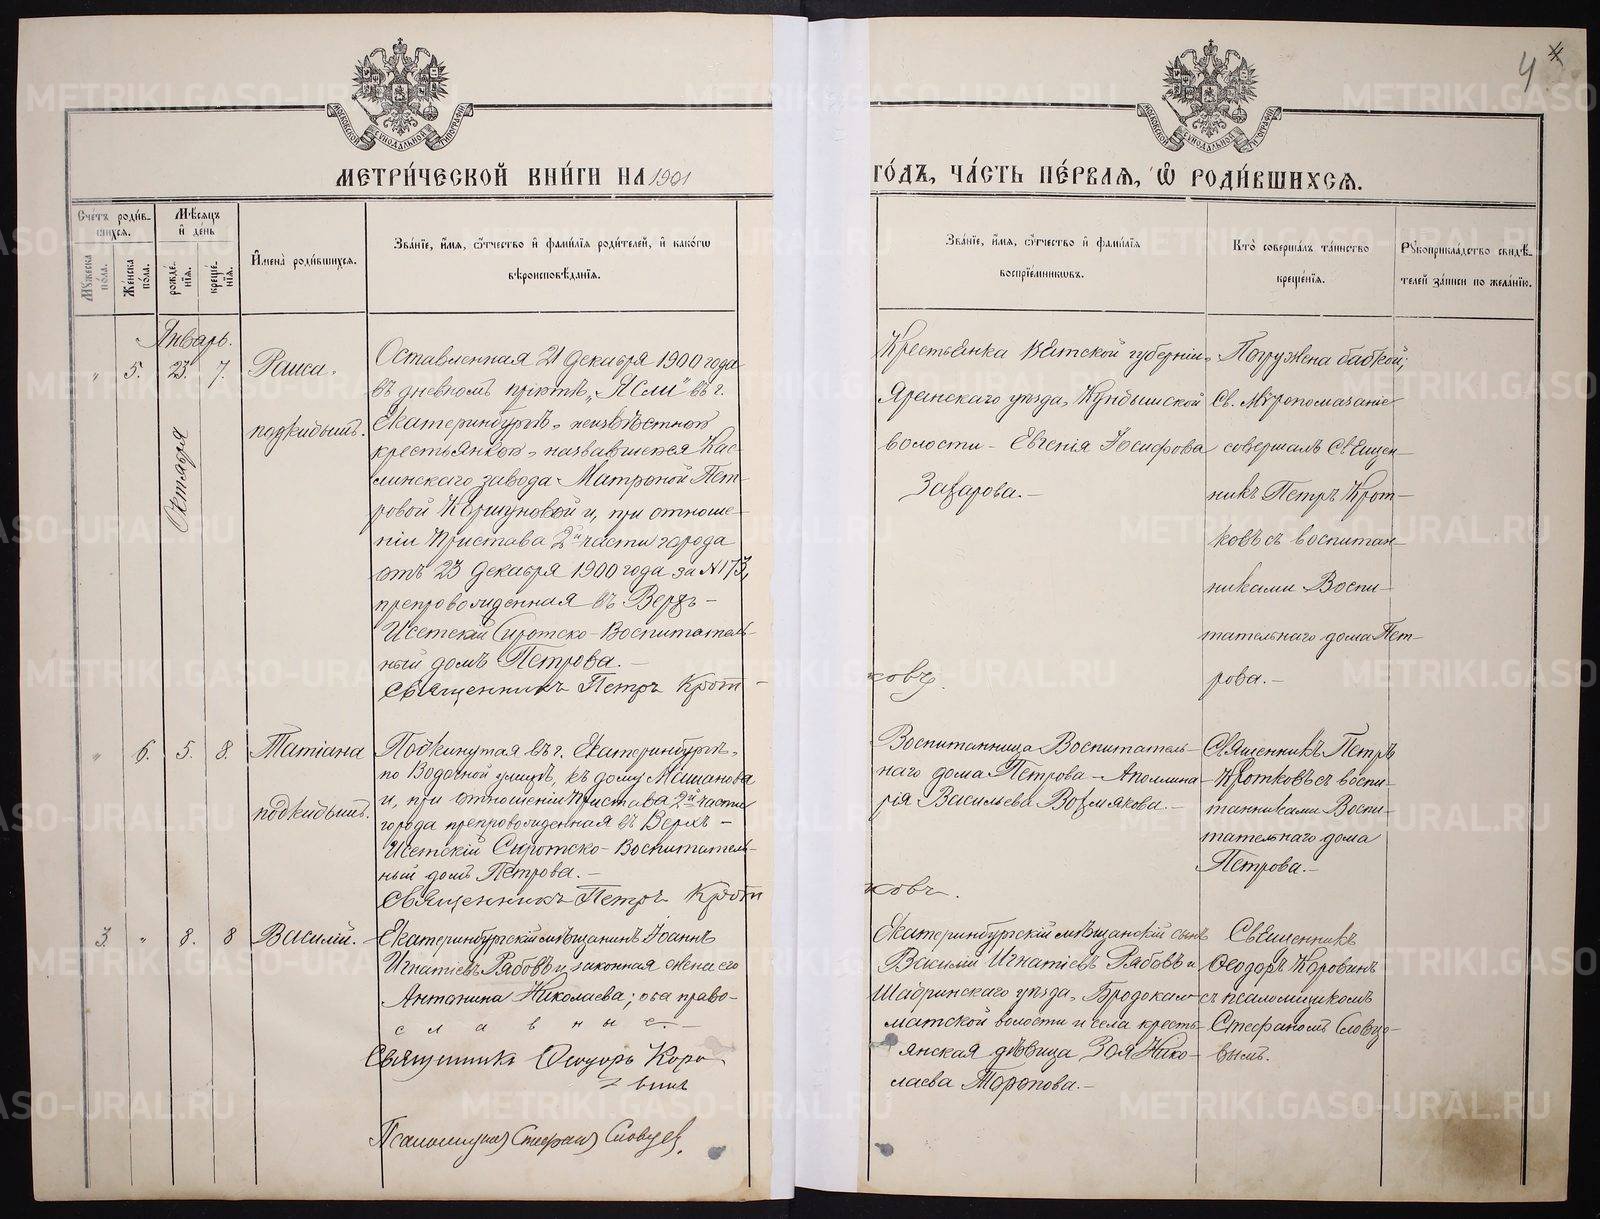 4
МЕТРИ́ЧЕСКОЙ КНИ́ГИ НА 1901
ГО́ДЪ, ЧА́СТЬ ПЕ́РВАЯ, Ѡ РОДИ́ВШИХСЯ.
Сче́тъ роди́в-
шихся.
Му́жеска по́ла.
Же́нска по́ла.
Мѣ́сяцъ и де́нь
рожде́нїя.
креще́нїя.
И́мена роди́вшихся.
Зва́нїе, и́мя, о́тчество и фами́лїя роди́телей, и како́гѡ
вѣроисповѣ́данїя.
Зва́нїе, и́мя, о́тчество и фами́лїя
воспрїе́мниковъ.
Кто̀ соверша́лъ та́инство
креще́нїя.
Рукоприкла́дство свидѣ́-
телей за́писи по жела́нїю.
Январь.
" 5. 23. 7. Раиса.
Октября
подкидышъ.
Оставленная 21 декабря 1900 года
въ дневномъ прiютѣ „Ясли" въ г.
Екатеринбургѣ неизвѣстной
крестьянкой, назвавшейся Кас-
линскаго завода Матроной Пет-
ровой Коршуновой и, при отноше-
нiи Пристава 2й части города
отъ 23 декабря 1900 года за № 173,
препровожденная въ Верхъ-
Исетскiй Сиротско-Воспитатель-
ный домъ Петрова.-
Священникъ Петръ Крот-
Крестьянка Вятской губернiи,
Яранскаго уѣзда, Кундышской
волости - Евгенiя Iосифова
Захарова.-
ковъ.
Погружена бабкой;
Св. Мѵропомазанiе
совершалъ Священ-
никъ Петръ Крот-
ковъ съ воспитан-
никами Воспи-
тательнаго дома Пет-
рова.-
" 6. 5. 8. Татiана
подкидышъ.
Подкинутая въ г. Екатеринбургѣ,
по Водочной улицѣ, къ дому Машанова
и, при отношенiи Пристава 2й части
города препровожденная въ Верхъ-
Исетскiй Сиротско-Воспитатель-
ный домъ Петрова.-
Священникъ Петръ Крот
Воспитанница Воспитатель-
наго дома Петрова - Аполлина
рiя Васильева Возмякова.-
ковъ.
Священникъ Петръ
Кротковъ съ воспи-
танниками Воспи-
тательнаго дома
Петрова.-
3. " 8. 8 Василiй.
Екатеринбургскiй мѣщанинъ Iоаннъ
Игнатiевъ Рябовъ и законная жена его
Антонина Николаева; оба право-
славные.-
Священникъ Ѳеодоръ Коро
винъ
Псаломщикъ Стефанъ Словцев.
Екатеринбургскiй мѣщанскiй сынъ
Василiй Игнатiевъ Рябовъ и
Шадринскаго уѣзда, Бродокал-
матской волости и села кресть-
янская дѣвица Зоя Нико-
лаева Торопова.-
Священникъ
Ѳеодоръ Коровинъ
съ псаломщикомъ
Стефаномъ Словцо-
вымъ.
METRIKI.GASO-URAL.RU